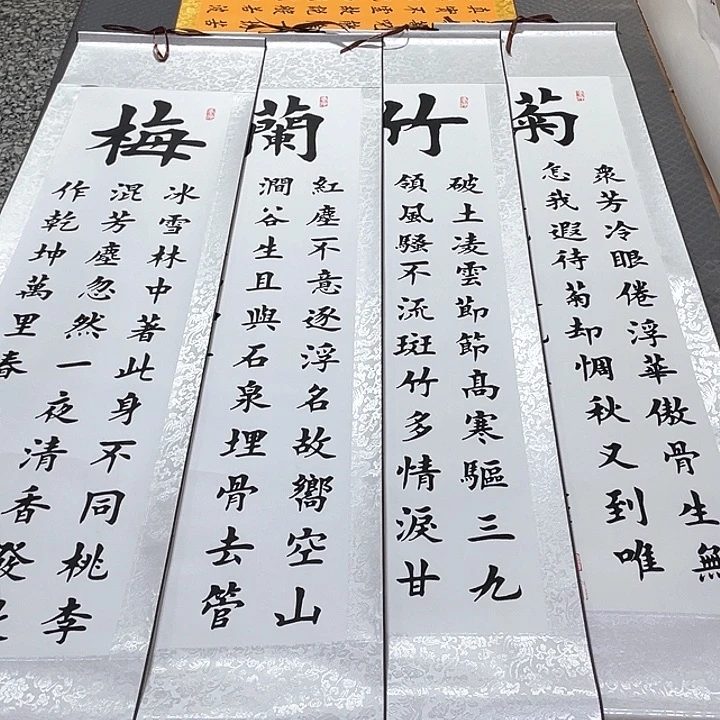 梅
冰雪林中著此身不同桃李
混芳塵忽然一夜清香發
作乾坤萬里春
蘭
紅塵不意逐浮名故嚮空山
澗谷生且與石泉埋骨去管
竹
破土凌雲節節高寒驅三九
領風騷不流斑竹多情淚甘
菊
衆芳冷眼倦浮華傲骨生無
怎我遐待菊却惆秋又到唯